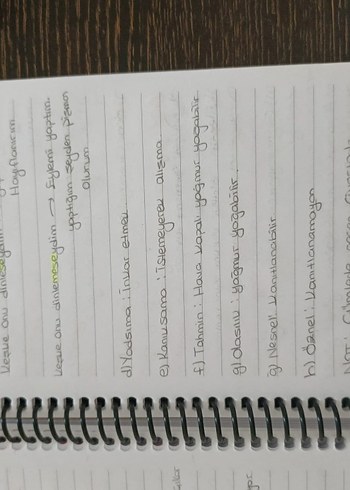 Keşke onu dinleseydim
Hayıflanırım
Keşke onu dinlemeseydim → Eylemi yaptım
yaptığım şeyden pişman
olurum
d) Yadsıma : İnkar etme
e) Kanıksama : İstemeyerek alışma
f) Tahmin : Hava kapalı yağmur yağabilir
g) Olasılık : yağmur yağabilir
ğ) Nesnel : Kanıtlanabilir
h) Öznel : Kanıtlanamayan
NOT: